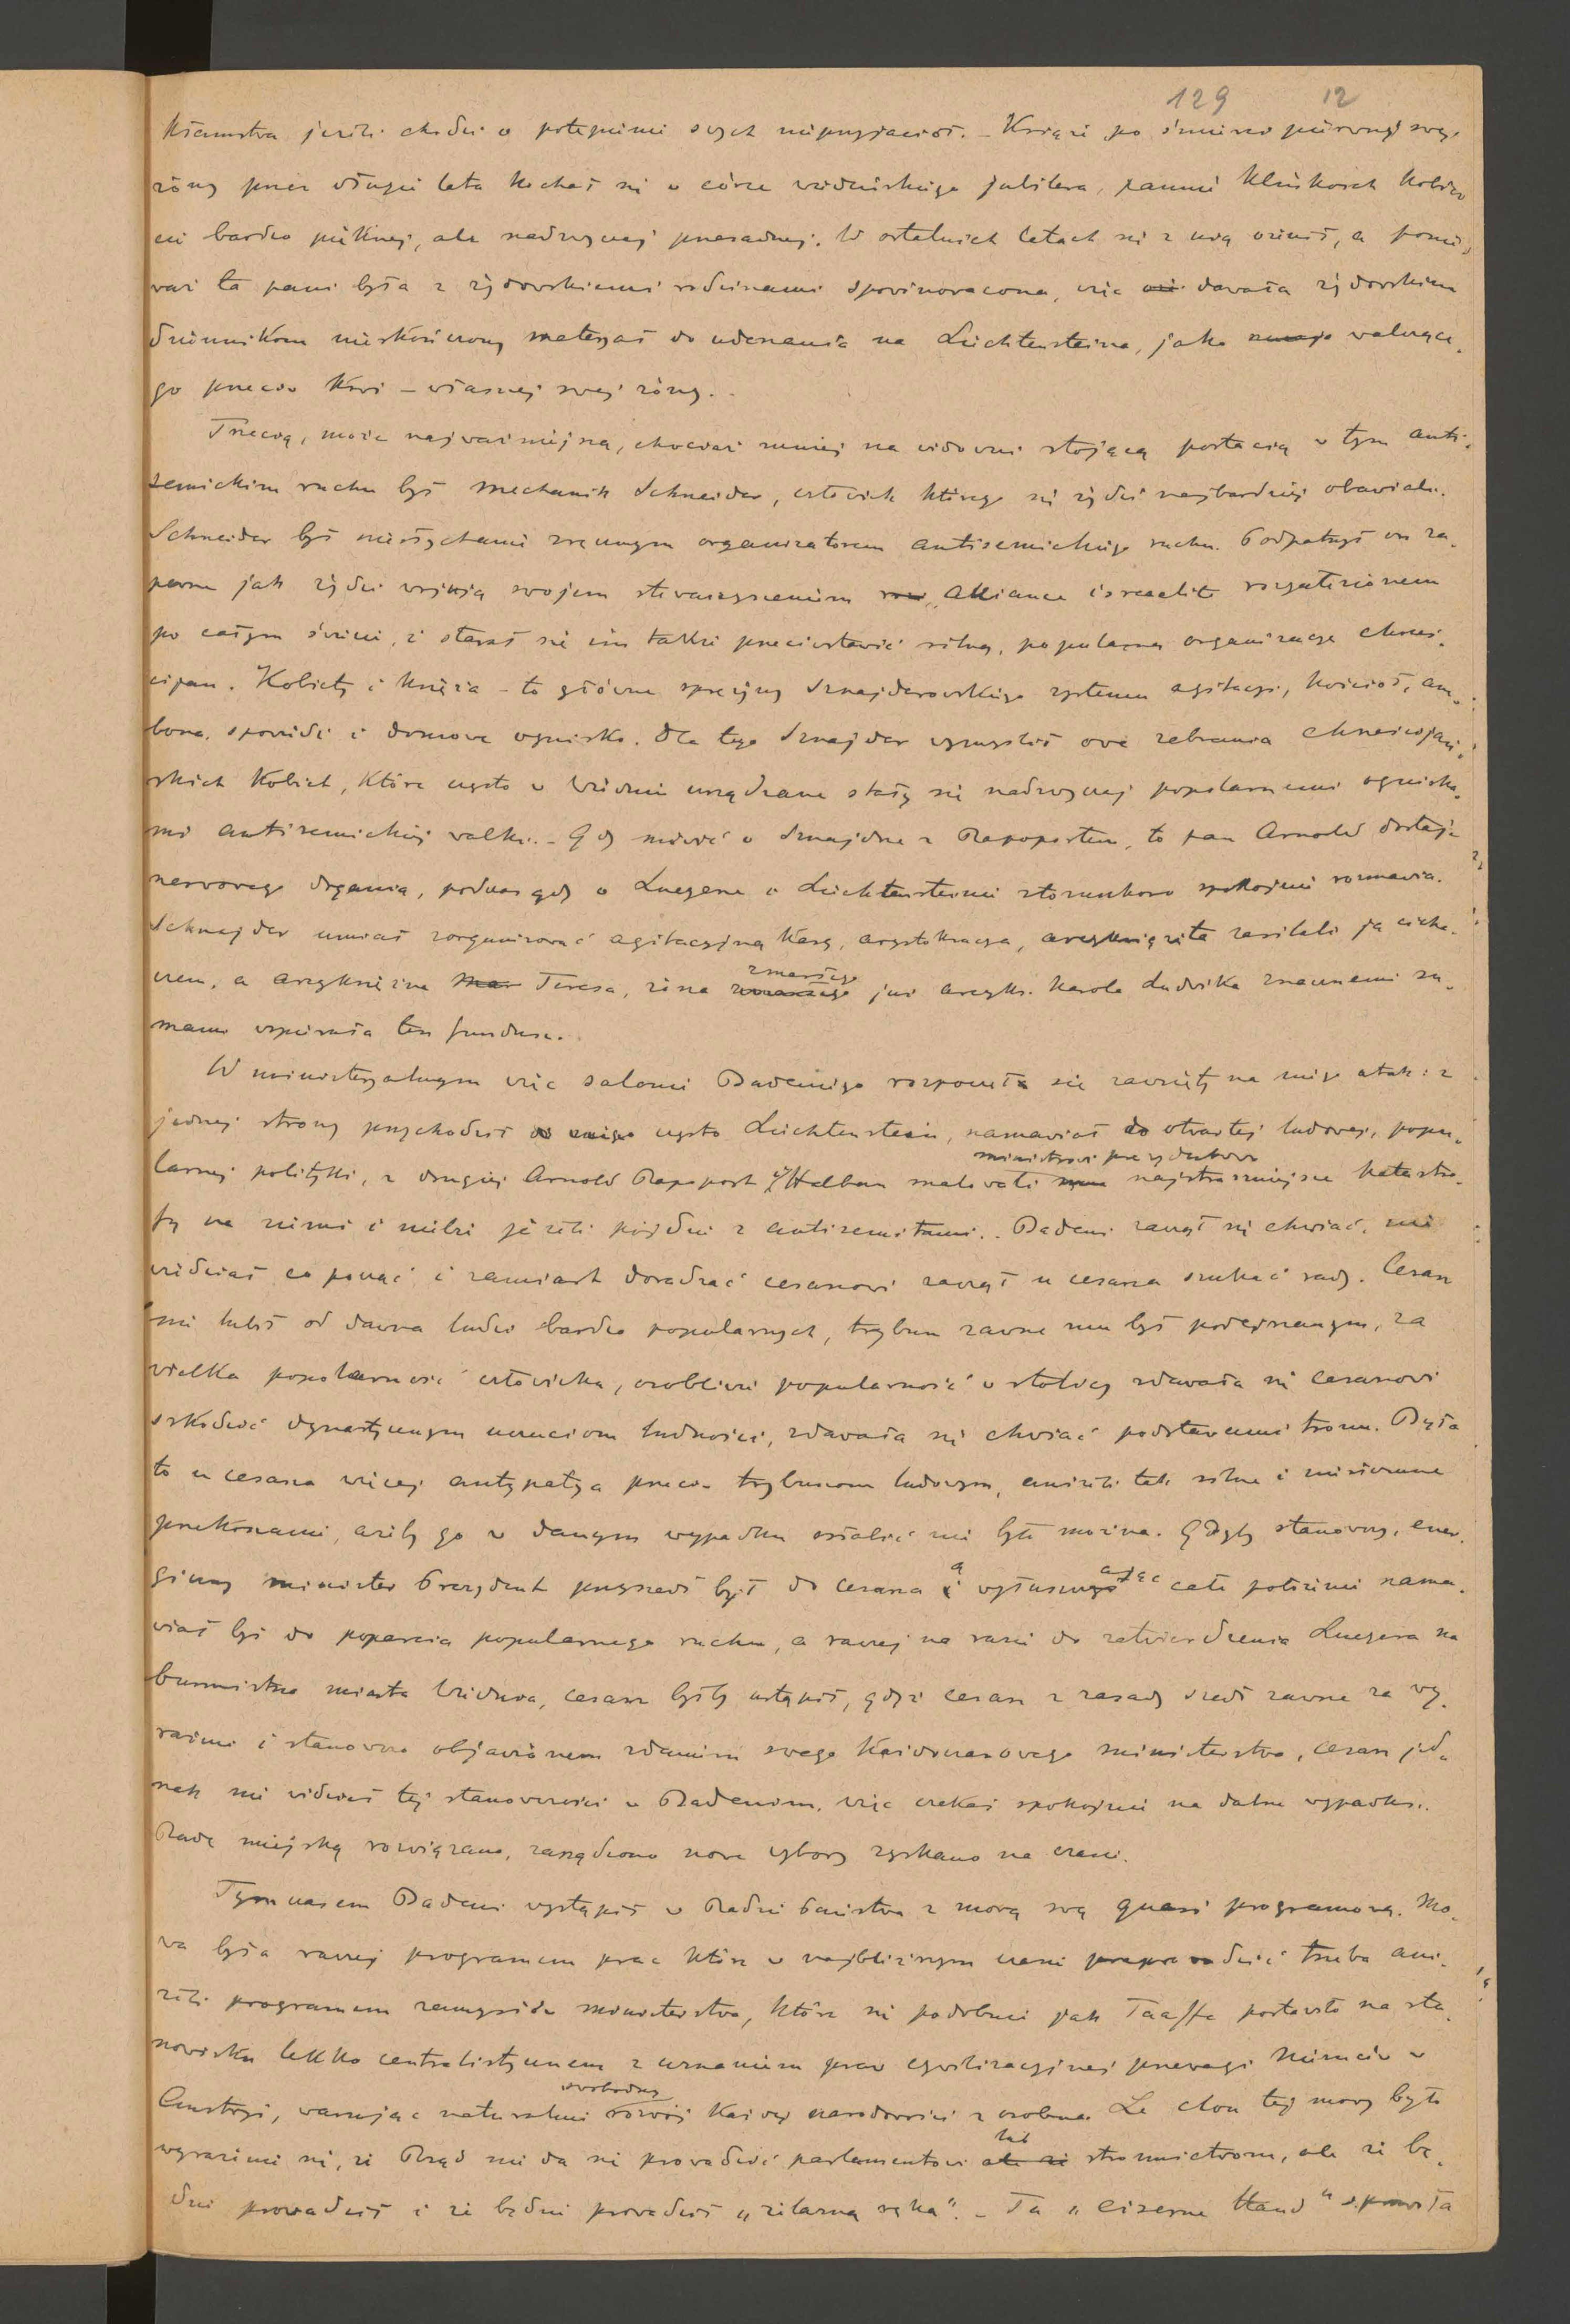 129 12
kłamstwa jeżeli chodzi o potępienie swych nieprzyjaciół. – Książe po śmierci pierwszej swej
żony przez długie lata kochał się w córce wiedeńskiego jubilera, pannie Klinkosch kobie-
cie bardzo pięknej, ale nadzwyczaj przesadnej. W ostatnich latach się z nią ożenił, a ponie-
waż ta pani była z żydowskiemi rodzinami spowinowacona, więc dawała żydowskim
dziennikom nieskończony materyał do uderzania na Liechtensteina, jako walczące-
go przeciw krwi – własnej swej żony. –
Trzecią, może najważniejszą, chociaż mniej na widowni stojącą postacią w tym anti-
semickim ruchu był mechanik Schneider, człowiek którego się żydzi najbardziej obawiali.
Schneider był niesłychanie zręcznym organizatorem antisemickiego ruchu. Podpatrzył on za-
pewne jak żydzi wojują swojem stowarzyszeniem „Alliance israelite rozgałęzionem
po całym świecie, i starał się im także przeciwstawić silną, popularną organizacyę chrześ-
cijan. Kobiety i księża – to główne sprężyny Sznajderowskiego systemu agitacyi, kościół, am-
bona, spowiedź i domowe ognisko. Dla tego Sznajder wymyślił owe zebrania chrześcijań-
skich kobiet, które często w Wiedniu urządzane stały się nadzwyczaj popularnemi ogniska-
mi antisemickiej walki. – Gdy mówić o Sznajdrze z Rapoportem, to pan Arnold dostaje
nerwowego drgania, podczas gdy o Luegerze i Liechtensteinie stosunkowo spokojnie rozmawia.
Schnajder umiał zorganizować agitacyjną kasę, arystokracya, arcyksiążęta zasilali ją cicha-
czem, a arcyksiężna Teresa, żona zmarłego już arcyks. Karola Ludwika znacznemi su-
mami wspierała ten fundusz.
W ministeryalnym więc salonie Badeniego rozpoczęła się zawzięty na niego atak: z
jednej strony przychodził często Liechtenstein, namawiał do otwartej ludowej, popu-
larnej polityki, z drugiej Arnold Rapoport i Halban malowali ministrowi prezydentowi najstraszniejsze katastro-
fy na ziemi i niebie jeżeli pójdzie z antisemitami. Badeni zaczął się chwiać, nie
wiedział co począć i zamiast doradzać cesarzowi zaczął u cesarza szukać rady. Cesarz
nie lubił od dawna ludzi bardzo popularnych, trybun zawsze mu był podejrzanym, za
wielka popularność człowieka, osobliwie popularność w stolicy zdawała się cesarzowi
szkodzić dynastycznym uczuciom ludności, zdawała się chwiać podstawami tronu. Była
to u cesarza więcej antypatya przeciw trybunom ludowym, aniżeli tak silne i niezłomne
przekonanie, ażeby go w danym wypadku osłabić nie było można. Gdyby stanowczy, ener-
giczny minister Prezydent przyszedł był do cesarza a wyłuszczając całe położenie nama-
wiał był do poparcia popularnego ruchu, a raczej na razie do zatwierdzenia Luegera na
burmistrza miasta Wiednia, cesarz byłby ustąpił, gdyż cesarz z zasady szedł zawsze za wy-
raźnie i stanowczo objawionem zdaniem swego każdoczasowego ministerstwa, cesarz jed-
nak nie widział tej stanowczości w Badenim, więc czekał spokojnie na dalsze wypadki.
Radę miejską rozwiązano, zarządzono nowe wybory zyskano na czasie.
Tymczasem Badeni wystąpił w Radzie Państwa z mową swą quasi programową. Mo-
wa była raczej programem prac które w najbliższym czasie przeprowadzić trzeba ani-
żeli programem zamysłów ministerstwa, które się podobnie jak Taaffe postawiło na sta-
nowisku lekko centralistycznem z uznaniem praw cywilizacyjnej przewagi Niemców w
Austryi, warując naturalnie swobodny rozwój każdej narodowości z osobna. Le clou tej mowy było
wyrażenie się, że Rząd nie da się prowadzić parlamentowi lub stronnictwom, ale że bę-
dzie prowadził i że będzie prowadził „żelazną ręką”. – Ta „eiserne Hand” sprawiła